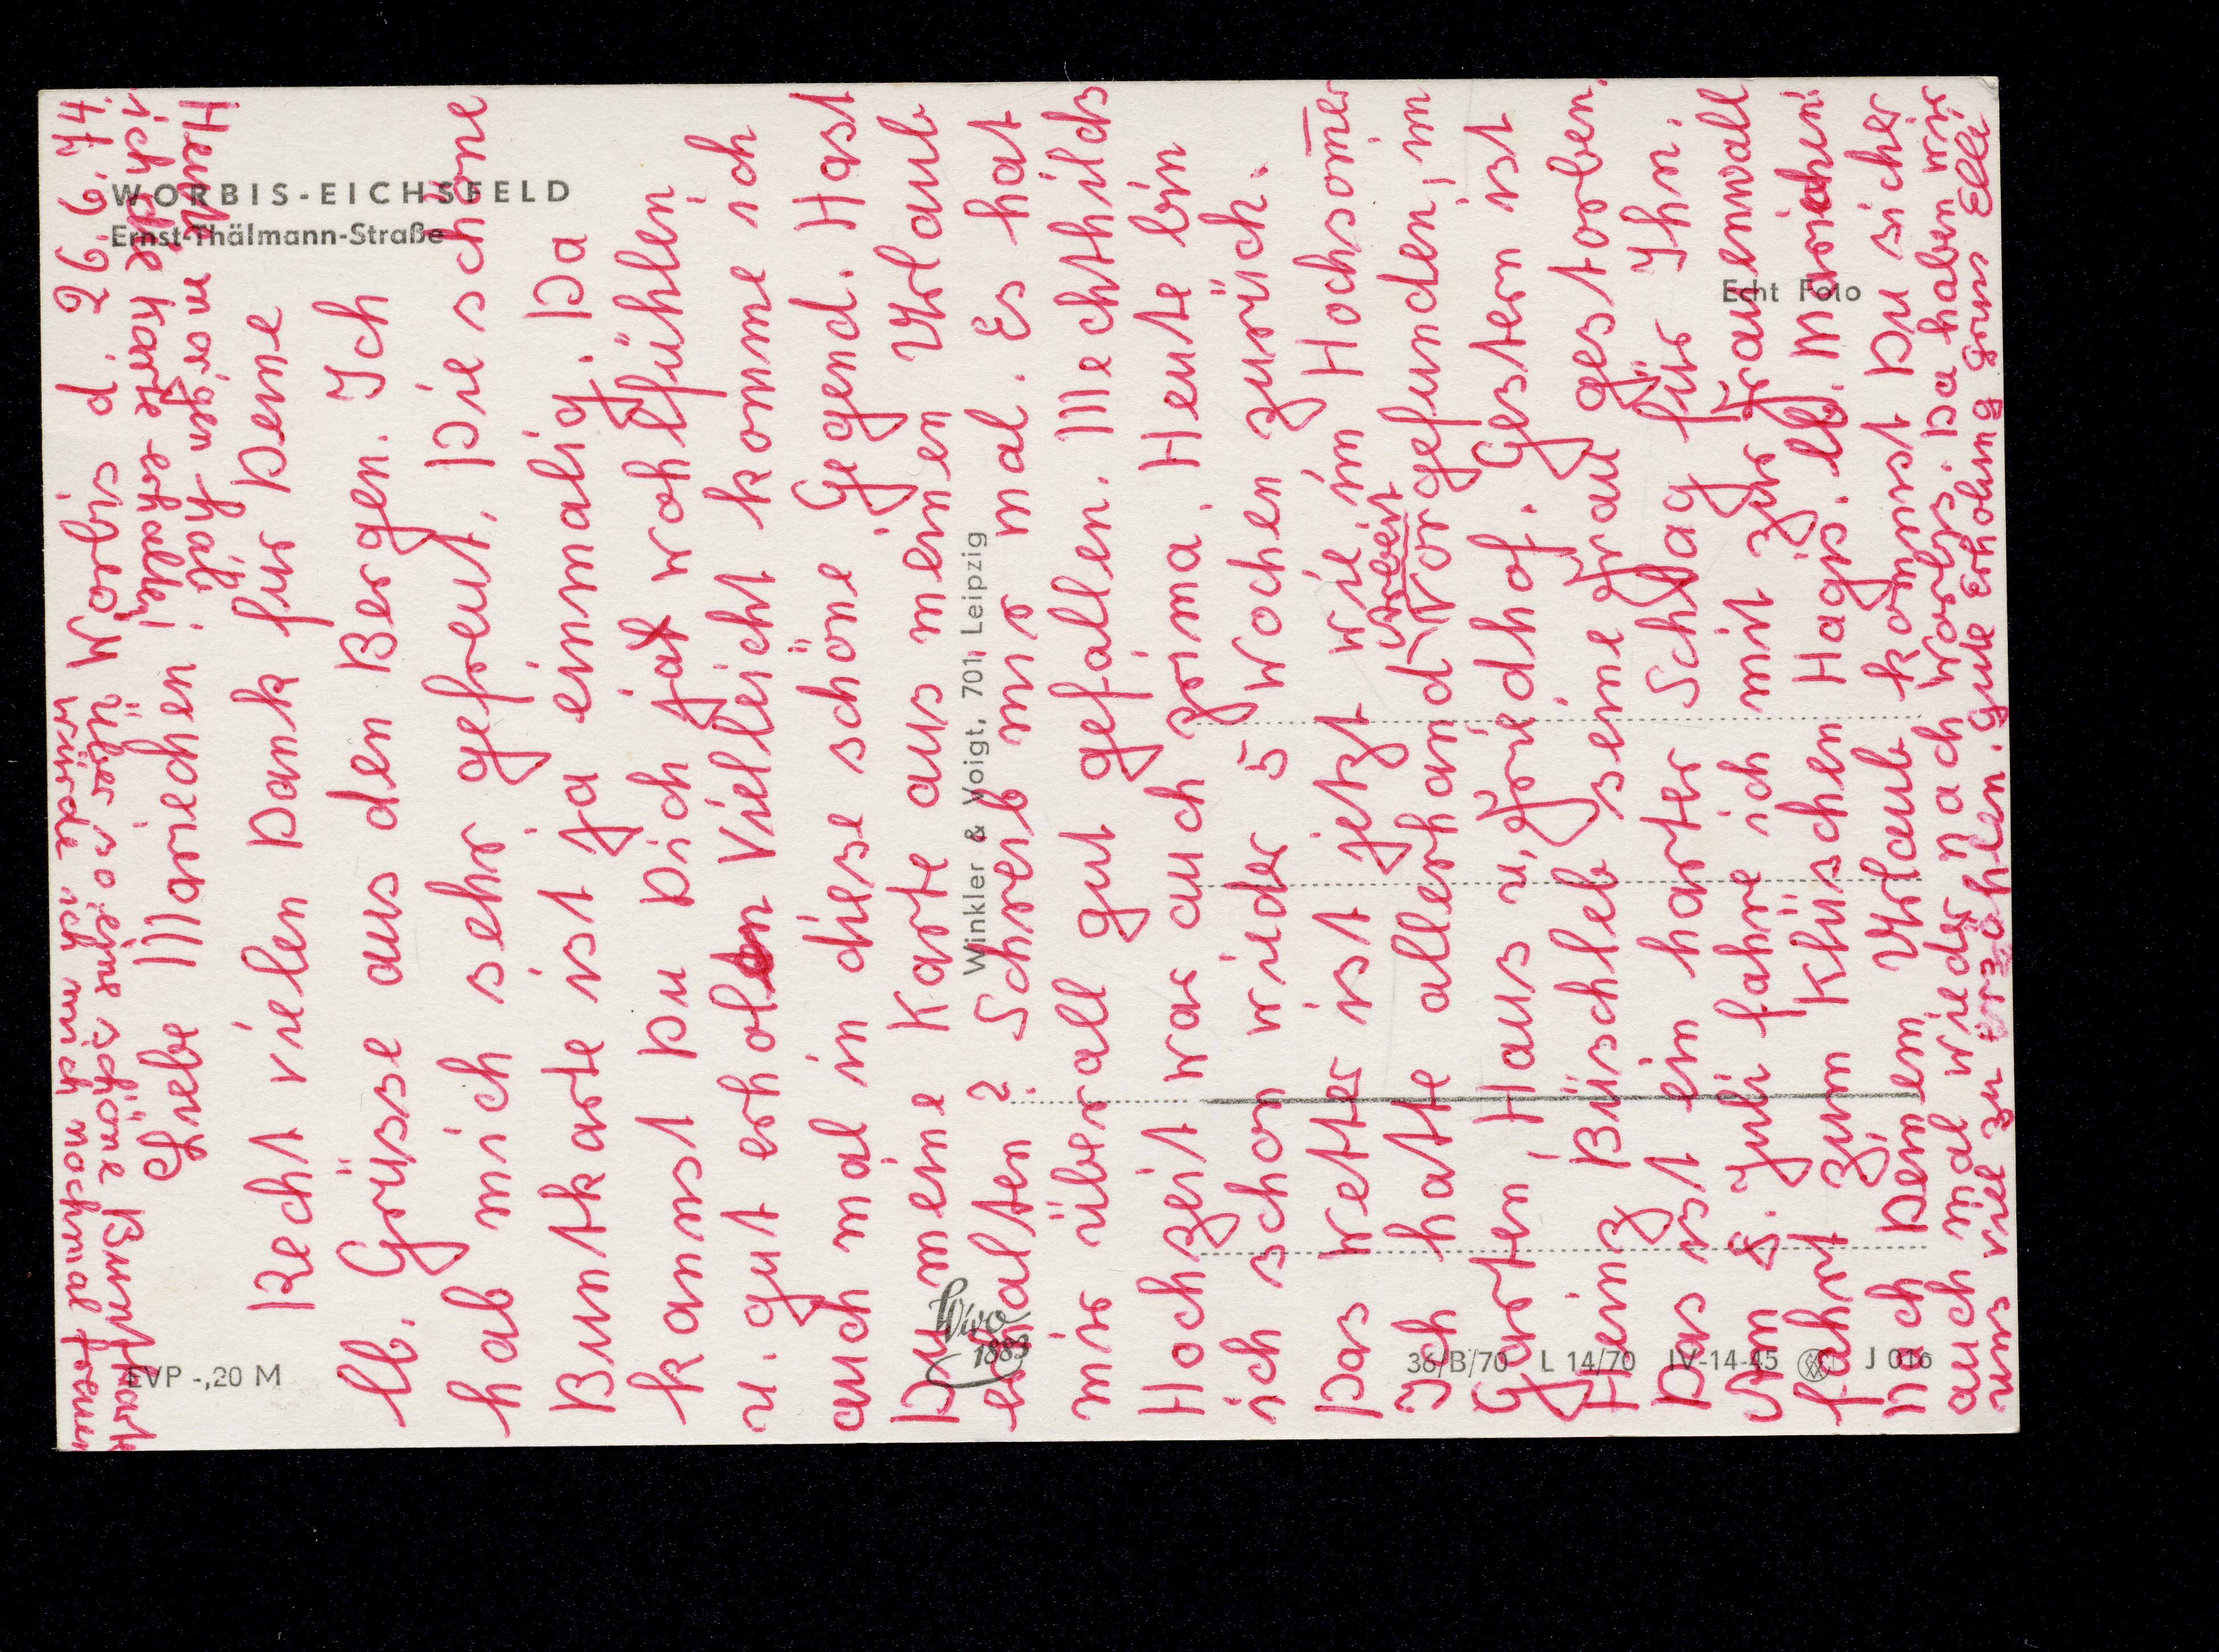 WORBIS-EICHSFELD
Ernst-Thälmann-Straße
Echt Foto
EVP -,20 M
Winkler & Voigt, 701 Leipzig
Wivo
1883
36/B/70 L 14/70 IV-14-45 J 016
Worbis d. 26.6.74
Liebe Mariechen!
Recht vielen Dank für Deine
lb. Grüsse aus den Bergen. Ich
hab mich sehr gefreut, Die schöne
Buntkarte ist ja einmalig. Da
kannst Du Dich ja wohlfühlen
u. gut erholen Vielleicht komme ich
auch mal in diese schöne Gegend. Hast
Du meine Karte aus meinen Urlaub
erhalten? Schreib mir mal. Es hat
mir überall gut gefallen. Mechthilds
Hochzeit war auch prima. Heute bin
ich schon wieder 5 Wochen zurück.
Das Wetter ist jetzt wie im Hochsomer
Ich hatte allerhand Arbeit vorgefunden, im
Garten, Haus u. Friedhof. Gestern ist
Heinz Büschleb seine Frau gestorben.
Das ist ein harter Schlag für Ihn.
Am 8. Juli fahre ich mit zur Frauenwall
fahrt zum Klüschen Hagis. lb. Mariechen!
Nach Deinem Urlaub kommst Du sicher
auch mal wieder nach Worbis. Da haben wir
uns viel zu erzählen. Gute Erholung Gruss Elli
Wenn
ich die Karte erhalten
über so eine schöne Buntkarte
würde ich mich nochmal freuen